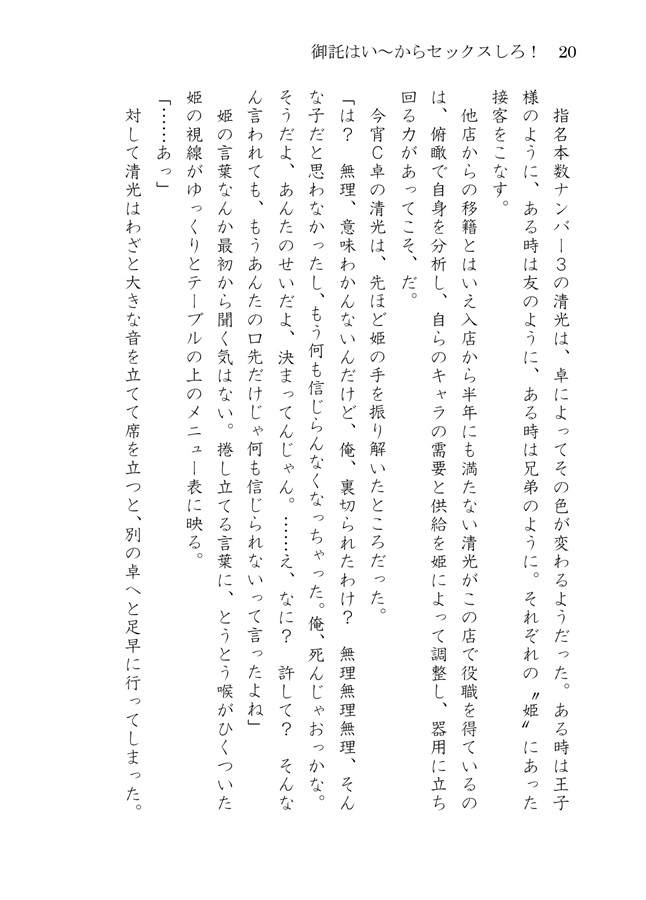 御託はい～からセックスしろ！ 20
　指名本数ナンバー３の清光は、卓によってその色が変わるようだった。ある時は王子
様のように、ある時は友のように、ある時は兄弟のように。それぞれの〝姫〟にあった
接客をこなす。
　他店からの移籍とはいえ入店から半年にも満たない清光がこの店で役職を得ているの
は、俯瞰で自身を分析し、自らのキャラの需要と供給を姫によって調整し、器用に立ち
回る力があってこそ、だ。
　今宵Ｃ卓の清光は、先ほど姫の手を振り解いたところだった。
「は？　無理、意味わかんないんだけど、俺、裏切られたわけ？　無理無理無理、そん
な子だと思わなかったし、もう何も信じらんなくなっちゃった。俺、死んじゃおっかな。
そうだよ、あんたのせいだよ、決まってんじゃん。……え、なに？　許して？　そんな
ん言われても、もうあんたの口先だけじゃ何も信じられないって言ったよね」
　姫の言葉なんか最初から聞く気はない。捲し立てる言葉に、とうとう喉がひくついた
姫の視線がゆっくりとテーブルの上のメニュー表に映る。
「……あっ」
　対して清光はわざと大きな音を立てて席を立つと、別の卓へと足早に行ってしまった。